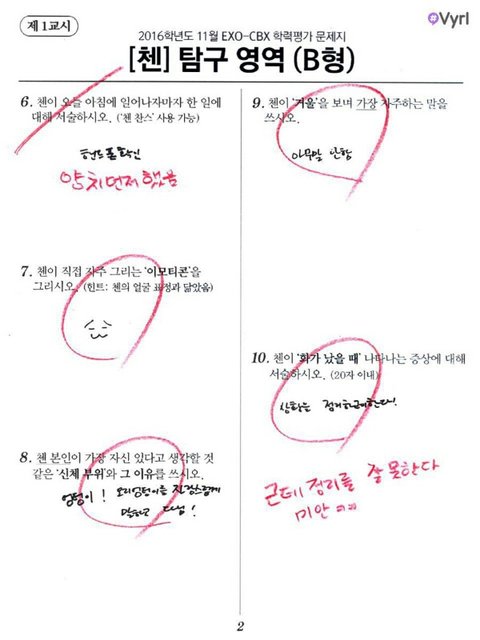 제1교시
Vyrl
2016학년도 11월 EXO-CBX 학력평가 문제지
[첸] 탐구 영역 (B형)
6. 첸이 오늘 아침에 일어나자마자 한 일에
대해 서술하시오. ('첸 찬스' 사용 가능)
핸드폰 확인
양치먼저 했음
7. 첸이 직접 자주 그리는 '이모티콘'을
그리시오. (힌트: 첸의 얼굴 표정과 닮았음)
8. 첸 본인이 가장 자신 있다고 생각할 것
같은 '신체 부위'와 그 이유를 쓰시오.
엉덩이! 오리엉덩이를 자랑스럽게
말하고 다님!
9. 첸이 '거울'을 보며 가장 자주하는 말을
쓰시오.
아무말 안함
10. 첸이 '화가 났을 때' 나타나는 증상에 대해
서술하시오. (20자 이내)
상황을 정리하려한다!
근데 정리를 잘 못한다
미안 ㅋㅋ
2